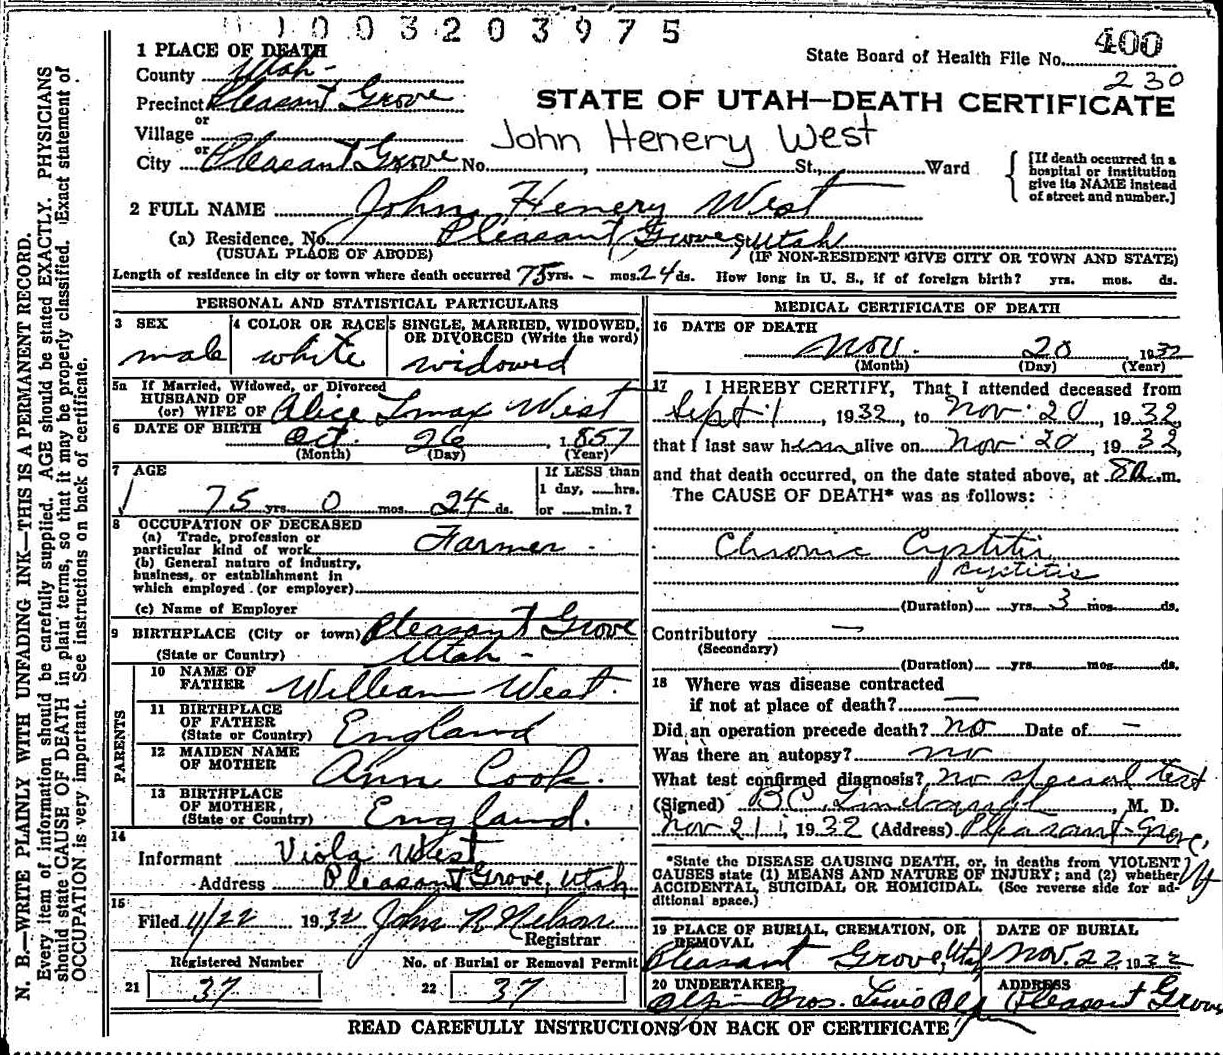 1003203975
State Board of Health File No. 400
230
STATE OF UTAH—DEATH CERTIFICATE
John Henery West
1 PLACE OF DEATH
County Utah
Precinct Pleasant Grove
or
Village
or
City Pleasant Grove No. , St., Ward
[If death occurred in a hospital or institution give its NAME instead of street and number.]
2 FULL NAME John Henery West
(a) Residence. No. Pleasant Grove, Utah
(USUAL PLACE OF ABODE) (IF NON-RESIDENT GIVE CITY OR TOWN AND STATE)
Length of residence in city or town where death occurred 75 yrs. - mos. 24 ds. How long in U. S., if of foreign birth? yrs. mos. ds.
PERSONAL AND STATISTICAL PARTICULARS
3 SEX
male
4 COLOR OR RACE
white
5 SINGLE, MARRIED, WIDOWED, OR DIVORCED (Write the word)
widowed
5a If Married, Widowed, or Divorced
HUSBAND OF
(or) WIFE OF Alice West
6 DATE OF BIRTH Oct. 26, 1857
(Month) (Day) (Year)
7 AGE
75 yrs. 0 mos. 24 ds.
If LESS than
1 day, hrs.
or min.?
8 OCCUPATION OF DECEASED
(a) Trade, profession or
particular kind of work Farmer
(b) General nature of industry,
business, or establishment in
which employed (or employer)
(c) Name of Employer
9 BIRTHPLACE (City or town) Pleasant Grove
(State or Country) Utah -
PARENTS
10 NAME OF
FATHER William West.
11 BIRTHPLACE
OF FATHER
(State or Country) England
12 MAIDEN NAME
OF MOTHER Ann Cook.
13 BIRTHPLACE
OF MOTHER,
(State or Country) England.
14
Informant Viola West
Address Pleasant Grove, Utah
15
Filed 11/22 1932 John R Nelson
Registrar
Registered Number
21 37
No. of Burial or Removal Permit
22 37
MEDICAL CERTIFICATE OF DEATH
16 DATE OF DEATH
Nov. 20, 1932
(Month) (Day) (Year)
17 I HEREBY CERTIFY, That I attended deceased from
Sept 1, 1932, to Nov. 20, 1932,
that I last saw him alive on Nov. 20, 1932,
and that death occurred, on the date stated above, at 8 a.m.
The CAUSE OF DEATH* was as follows:
Chronic Cystitis
cystitis
(Duration) yrs. 3 mos. ds.
Contributory —
(Secondary)
(Duration) yrs. mos. ds.
18 Where was disease contracted
if not at place of death? —
Did an operation precede death? no Date of —
Was there an autopsy? no
What test confirmed diagnosis? no special test
(Signed) B.C. Linebaugh, M. D.
Nov 21, 1932 (Address) Pleasant Grove, Ut
*State the DISEASE CAUSING DEATH, or, in deaths from VIOLENT
CAUSES state (1) MEANS AND NATURE OF INJURY; and (2) whether
ACCIDENTAL, SUICIDAL OR HOMICIDAL. (See reverse side for ad-
ditional space.)
19 PLACE OF BURIAL, CREMATION, OR
REMOVAL
Pleasant Grove, Utah
DATE OF BURIAL
Nov. 22, 1932
20 UNDERTAKER
Olpin Bros. Lewis Olpin
ADDRESS
Pleasant Grove
READ CAREFULLY INSTRUCTIONS ON BACK OF CERTIFICATE
N. B.—WRITE PLAINLY WITH UNFADING INK—THIS IS A PERMANENT RECORD.
Every item of information should be carefully supplied. AGE should be stated EXACTLY. PHYSICIANS
should state CAUSE OF DEATH in plain terms, so that it may be properly classified. Exact statement of
OCCUPATION is very important. See instructions on back of certificate.